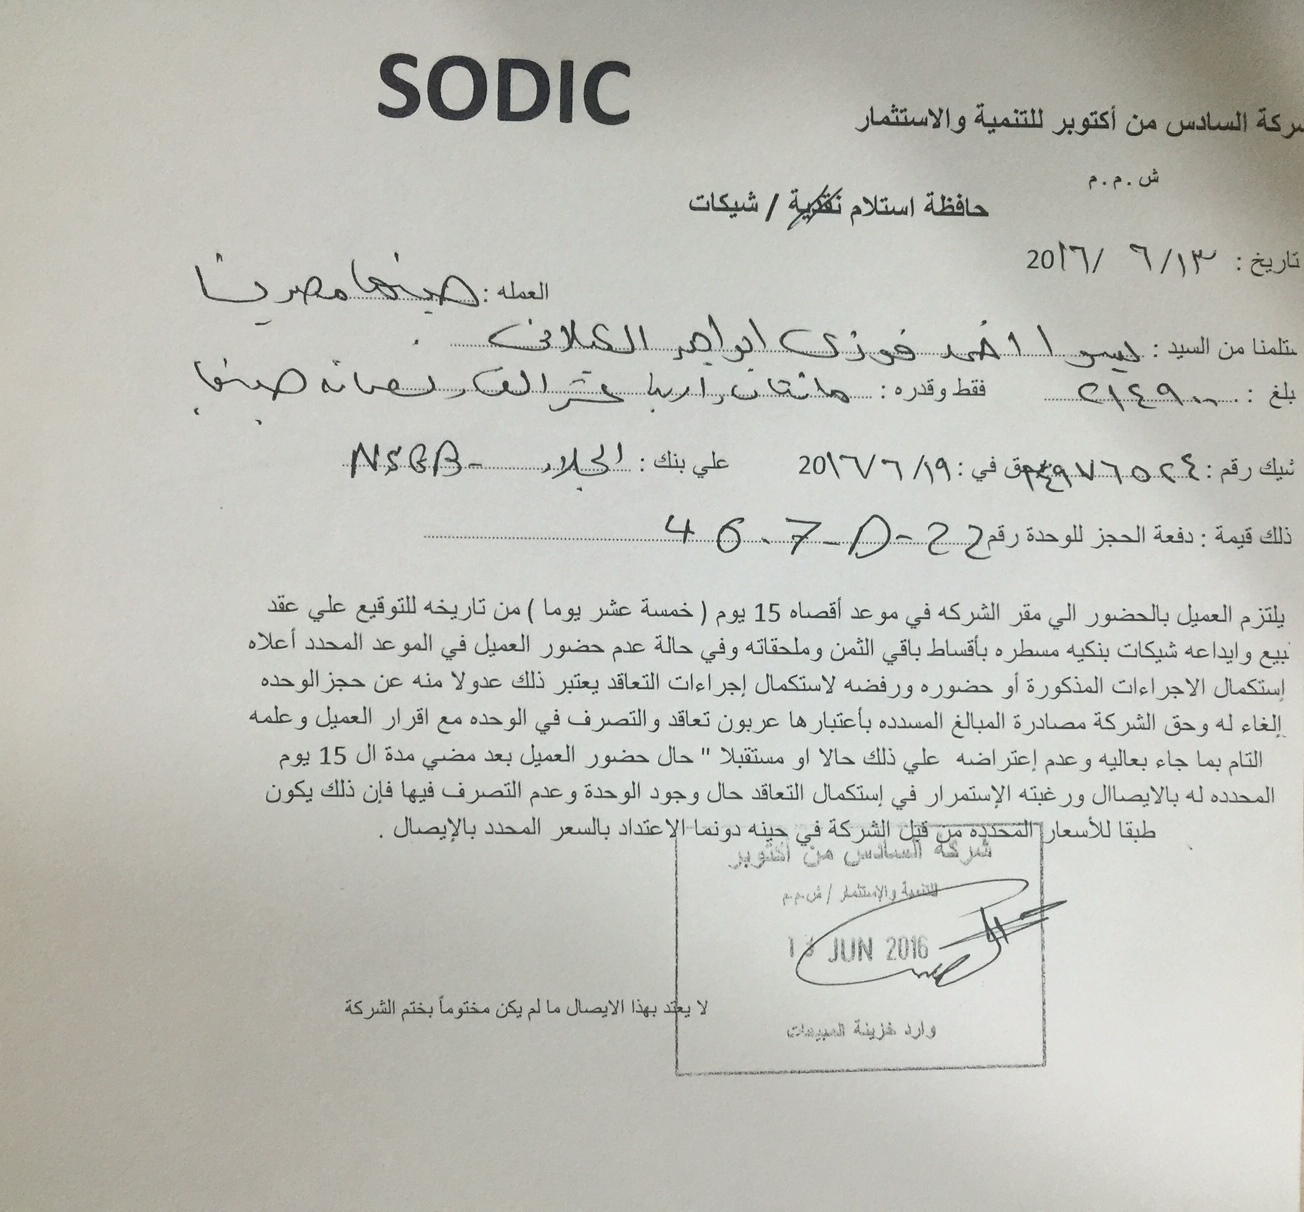 SODIC
شركة السادس من أكتوبر للتنمية والاستثمار
ش . م . م
حافظة استلام نقدية / شيكات
تاريخ : ١٣/ ٦ /20١٦
العمله :
ستلمنا من السيد : احمد فوزى
بلغ : ٢١٤٩٠٠ فقط وقدره : مائتان واربعة عشر الف وتسعمائه جنيها
شيك رقم : في : ١٩/ ٦ /20١٦ علي بنك : الجلاء - NSGB
ذلك قيمة : دفعة الحجز للوحدة رقم 46.7-D-22
يلتزم العميل بالحضور الي مقر الشركه في موعد أقصاه 15 يوم ( خمسة عشر يوما ) من تاريخه للتوقيع علي عقد
بيع وايداعه شيكات بنكيه مسطره بأقساط باقي الثمن وملحقاته وفي حالة عدم حضور العميل في الموعد المحدد أعلاه
إستكمال الاجراءات المذكورة أو حضوره ورفضه لاستكمال إجراءات التعاقد يعتبر ذلك عدولا منه عن حجز الوحده
إلغاء له وحق الشركة مصادرة المبالغ المسدده بأعتبارها عربون تعاقد والتصرف في الوحده مع اقرار العميل وعلمه
التام بما جاء بعاليه وعدم إعتراضه علي ذلك حالا او مستقبلا " حال حضور العميل بعد مضي مدة ال 15 يوم
المحدده له بالايصاال ورغبته الإستمرار في إستكمال التعاقد حال وجود الوحدة وعدم التصرف فيها فإن ذلك يكون
طبقا للأسعار المحدده من قبل الشركة في حينه دونما الاعتداد بالسعر المحدد بالإيصال .
شركة السادس من اكتوبر
للتنمية والإستثمار / ش.م.م
13 JUN 2016
لا يعتد بهذا الايصال ما لم يكن مختوماً بختم الشركة
وارد خزينة المبيعات